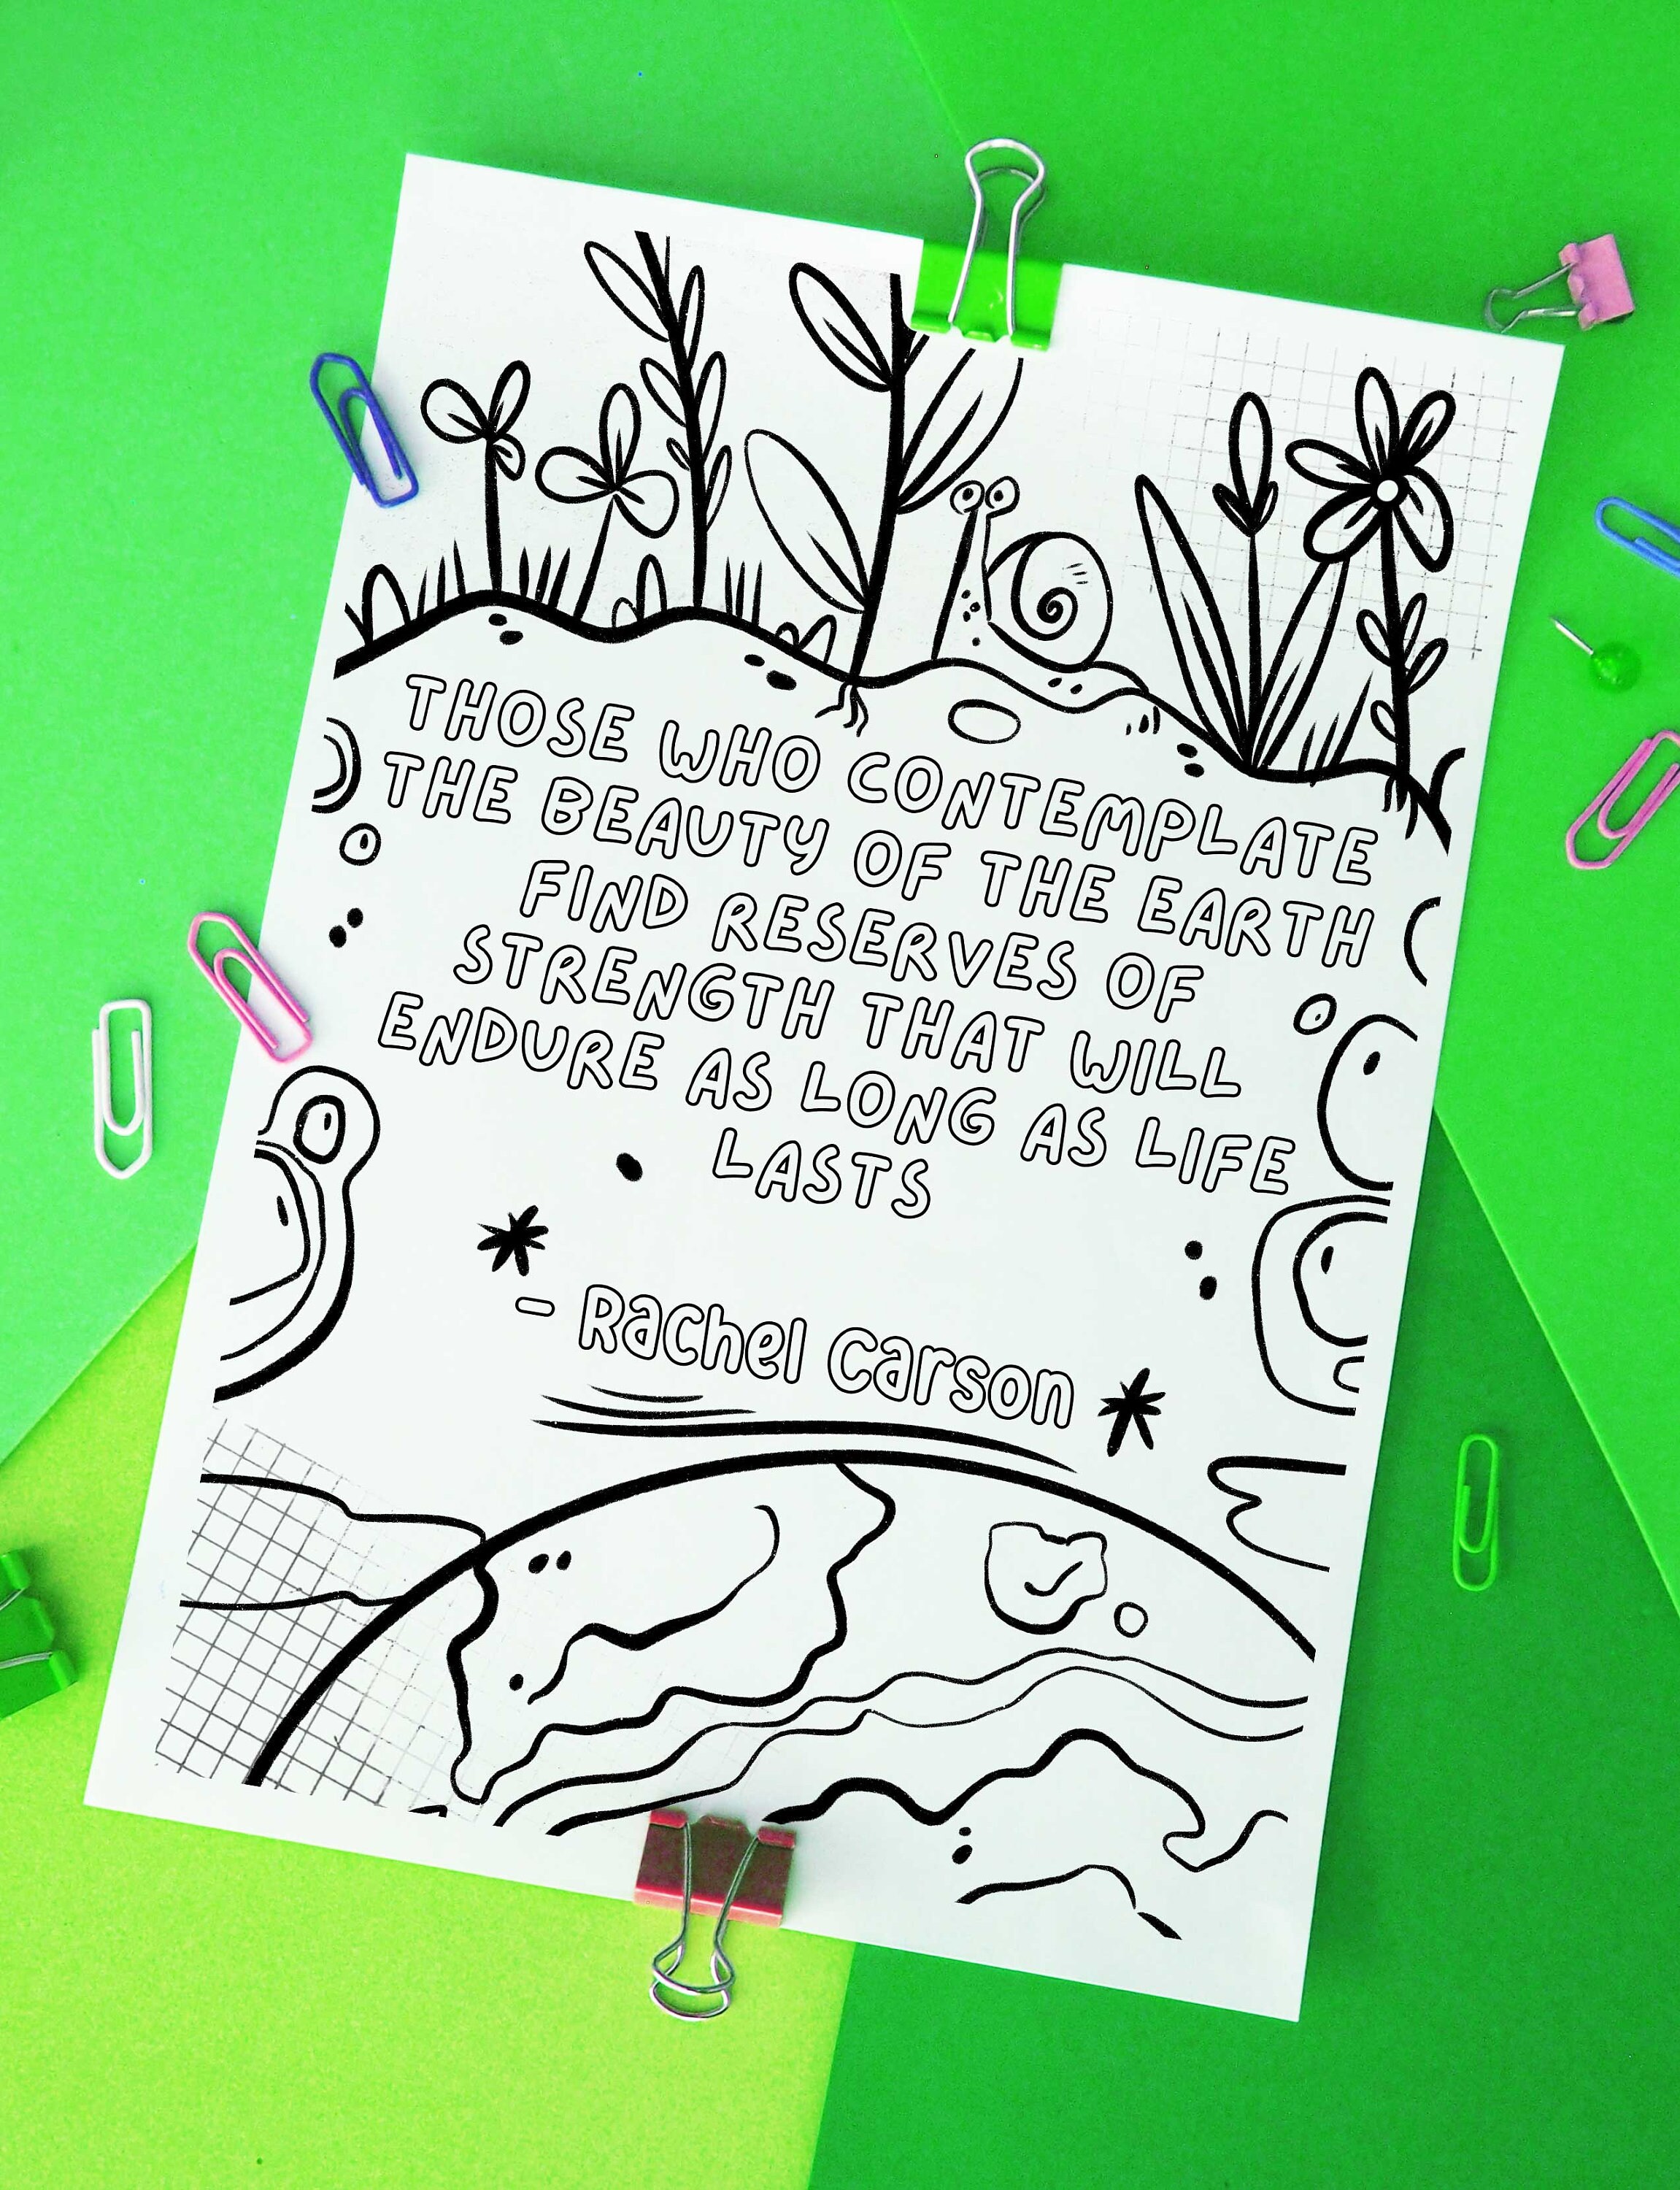 THOSE WHO CONTEMPLATE
THE BEAUTY OF THE EARTH
FIND RESERVES OF
STRENGTH THAT WILL
ENDURE AS LONG AS LIFE
LASTS
- Rachel Carson